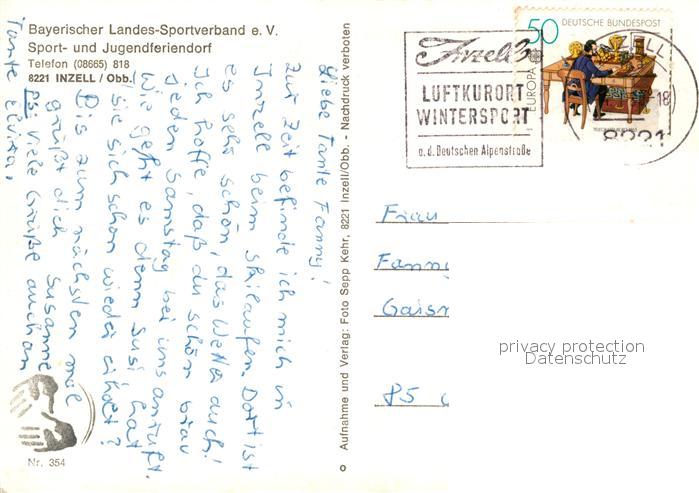 Bayerischer Landes-Sportverband e. V.
Sport- und Jugendferiendorf
Telefon (08665) 818
8221 INZELL / Obb.
Liebe Tante Fanny!
Zur Zeit befinde ich mich in
Inzell beim Skilaufen. Dort ist
es sehr schön, das Wetter auch!
Ich hoffe, daß du schön brav
jeden Samstag bei uns anrufst.
Wie geht es denn Susi, hat
sie sich schon wieder
Bis zum nächsten mal
grüßt dich Susanne
PS: Viele Grüße auch an
Tante Elvira.
Nr. 354
Aufnahme und Verlag: Foto Sepp Kehr, 8221 Inzell/Obb. - Nachdruck verboten
Inzell
LUFTKURORT
WINTERSPORT
a. d. Deutschen Alpenstraße
50 DEUTSCHE BUNDESPOST
EUROPA
-18
8221
Frau
Fanni
Gaisr
85
privacy protection
Datenschutz